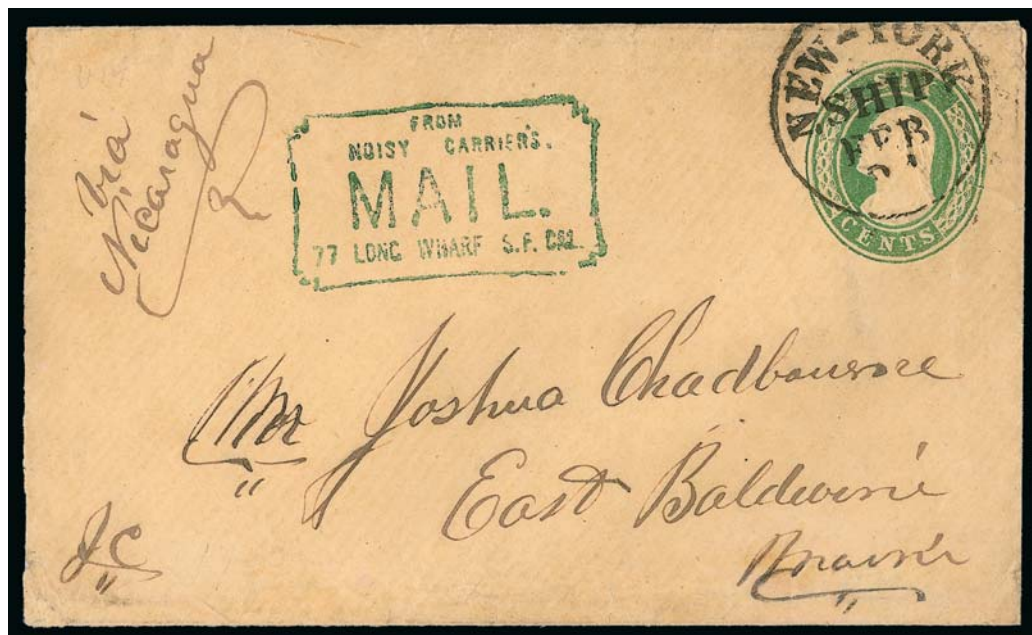 via
Nicaragua
FROM
NOISY CARRIER'S.
MAIL.
77 LONG WHARF S.F. CAL.
NEW-YORK
SHIP
FEB
CENTS
Mr Joshua Chadbourne
East Baldwin
Maine